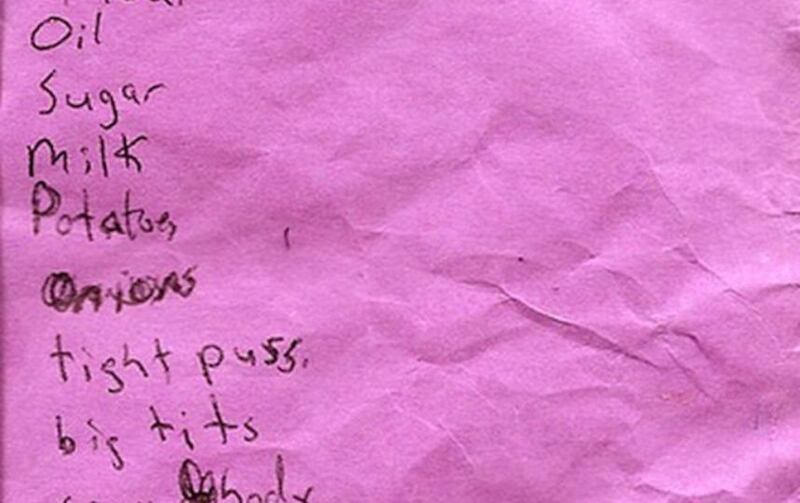 Oil
Sugar
Milk
Potatoes
Onions
tight puss.
big tits
body